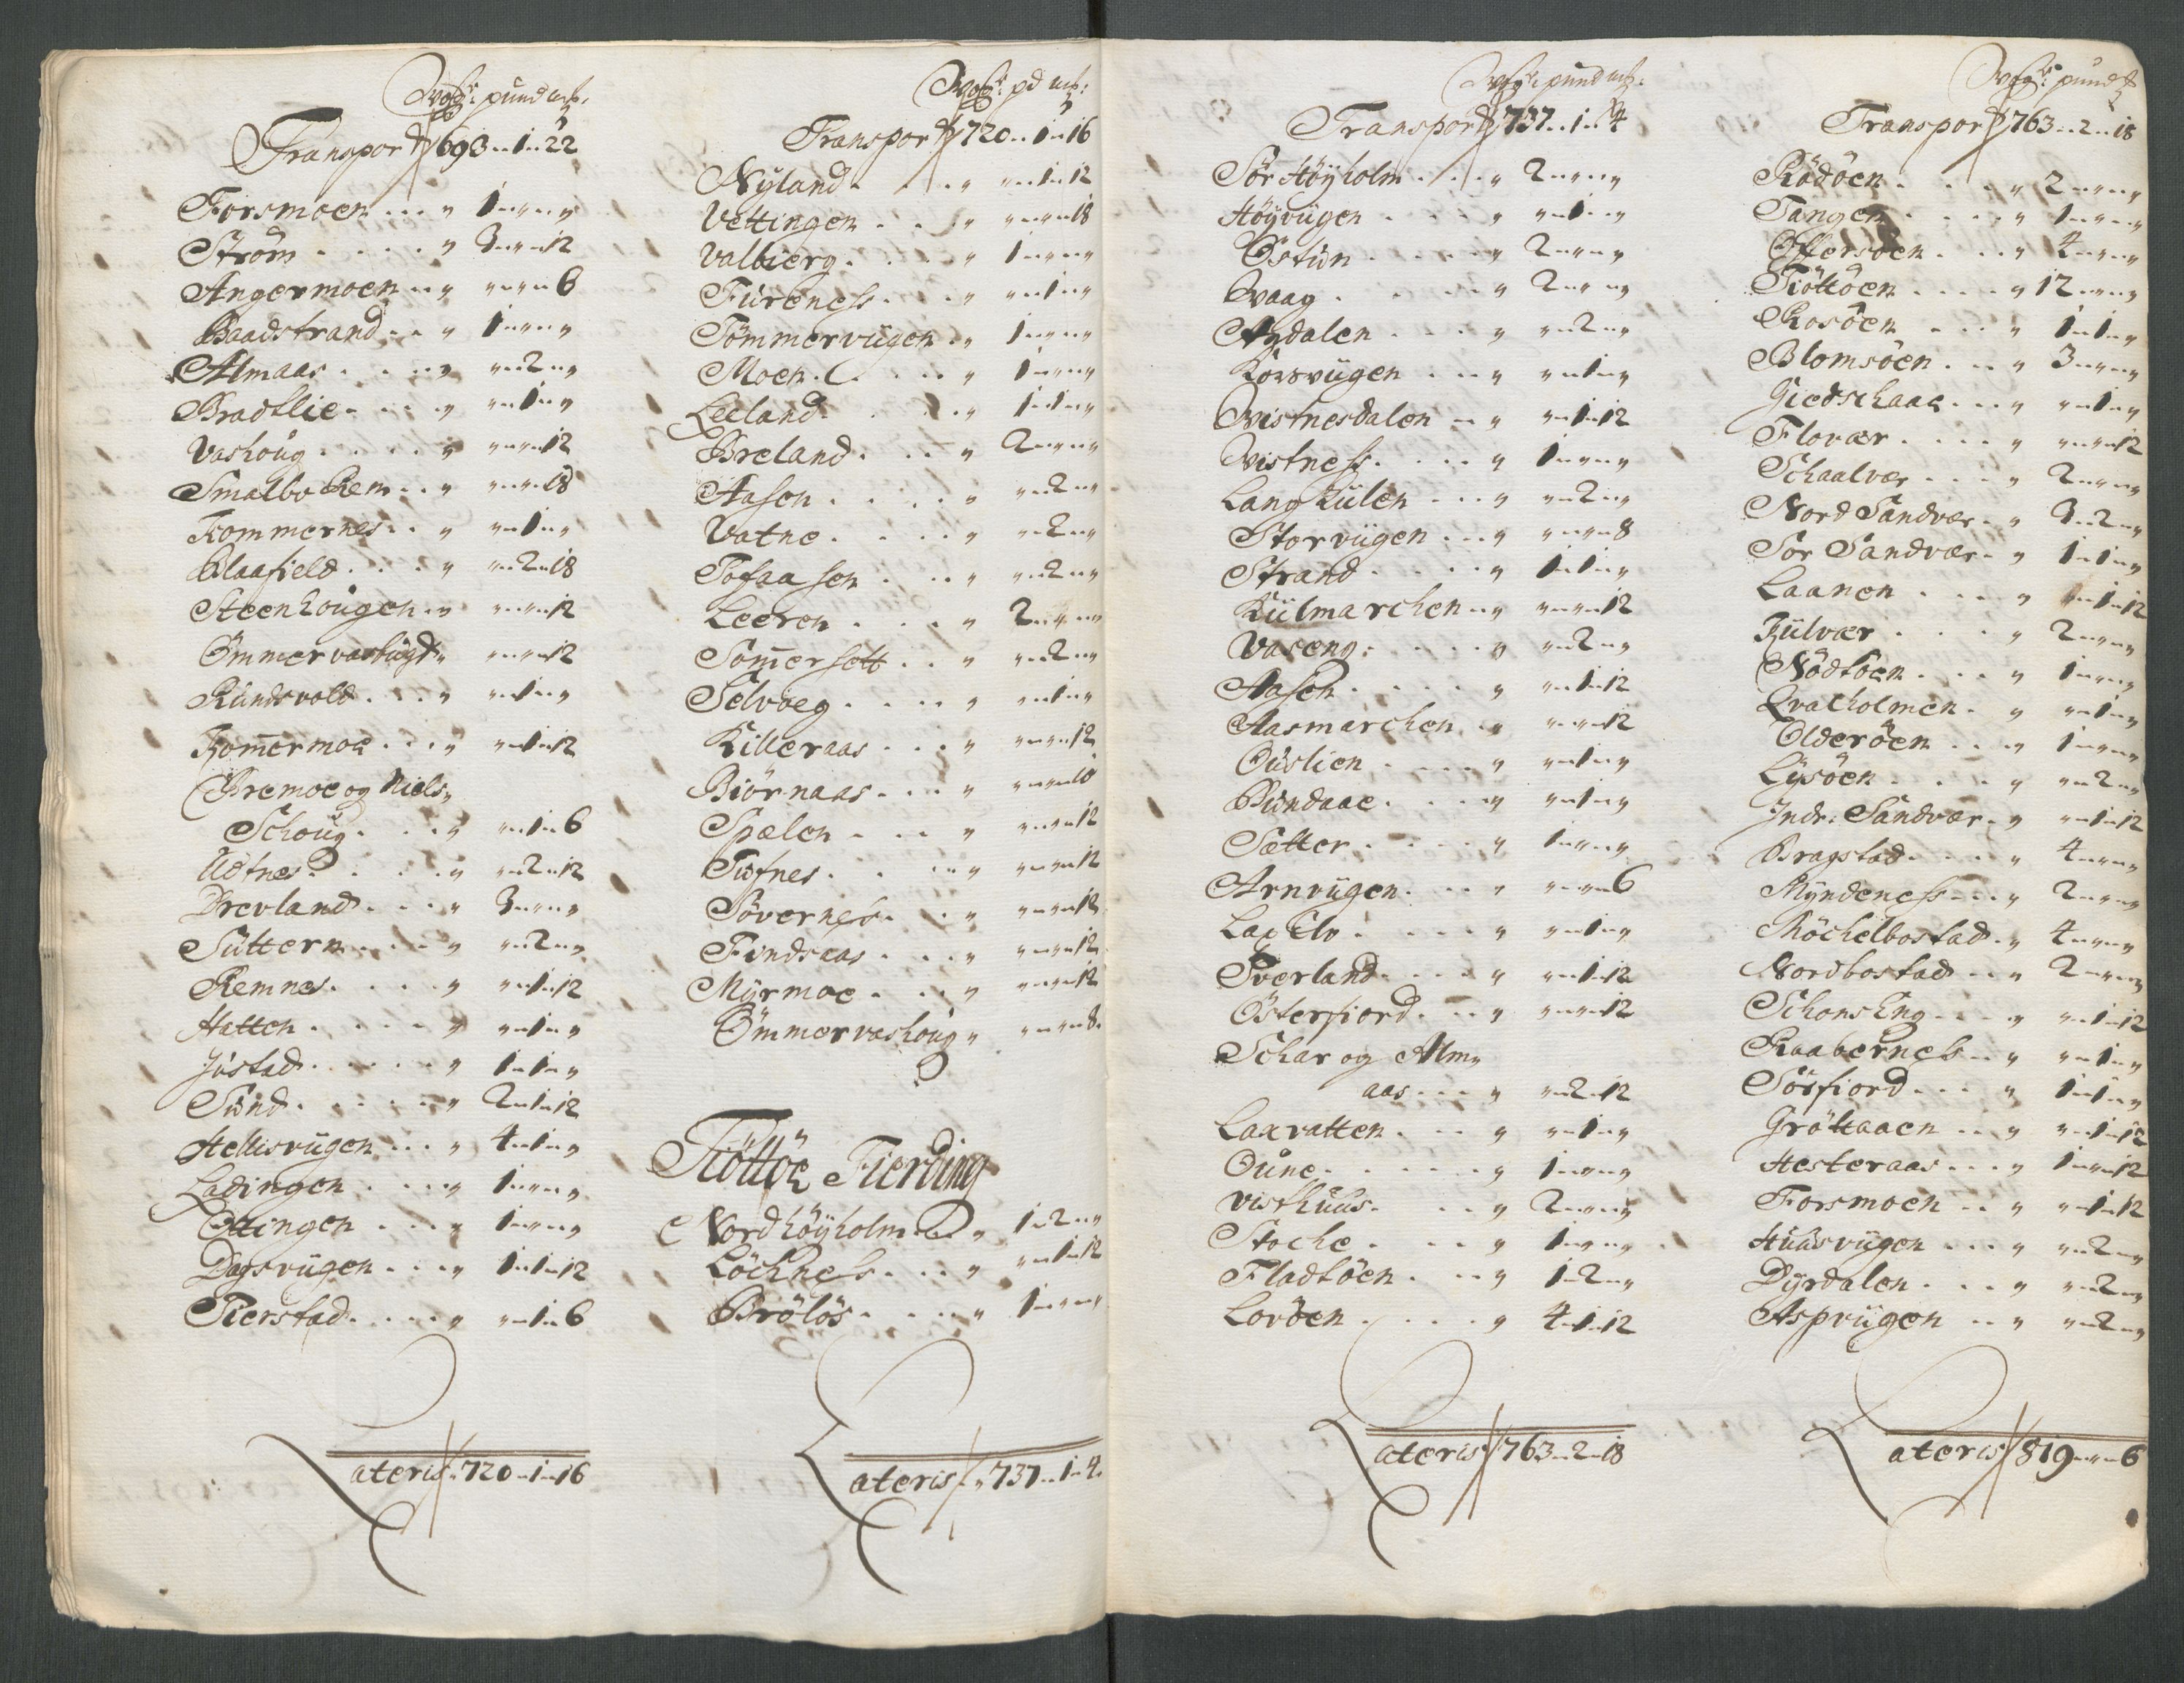 Wog: pund mk:
Transport 693 „ 1 „ 22
Forsmoen . . . „ 1 „ „ „
Ström . . . . „ 3 „ „ 12
Angermoen . . „ „ „ „ 6
Baadstrand . . „ 1 „ „ „
Almaas . . . „ „ 2 „ „
Bradtlie . . . „ „ 1 „ „
Vashoug . . . . „ „ „ „ 12
Smalbo Rem . . „ „ „ „ 18
Kommernes . . „ „ 1 „ „
Blaafield . . . „ „ 2 „ 18
Steenhougen . „ „ „ „ 12
Ömmervasbugt „ „ „ „ 12
Rundsvold . . . „ „ 1 „ „
Kom̄ermoe . . . „ „ 1 „ 12
Bremoe og Niels„
Schoug . . . „ „ 1 „ 6
Udtnes . . . . „ „ 2 „ 12
Drevland . . . „ 3 „ „ „
Suttern . . . „ „ 2 „ „
Remnes . . . . „ „ 1 „ 12
Hatten . . . . „ „ 1 „ „
Justad . . . . . „ 1 „ 1 „ „
Sund . . . . . „ 2 „ 1 „ 12
Hellisvügen . . . „ 4 „ 1 „ „
Ladingen . . . „ 1 „ „ „
Ottingen . . . „ 1 „ „ „
Dagsvügen . . . „ 1 „ 1 „ 12
Tierstad . . . . „ „ 1 „ 6
Lateris „ 720 „ 1 „ 16
Wog: pd mk:
Transport 720 „ 1 „ 16
Nyland . . . „ „ 1 „ 12
Vettingen . . . „ „ „ „ 18
Valbierg . . . . „ 1 „ „ „
Fureness . . . . „ „ 1 „ „
Tömmervügen . „ 1 „ „ „
Moen . . . . „ 1 „ „ „
Leeland . . . „ 1 „ 1 „ „
Breland . . . „ 2 „ „ „
Aasen . . . . . „ „ 2 „ „
Vatne . . . . . „ „ 2 „ „
Tosaasen . . . „ „ 2 „ „
Leeren . . . . „ 2 „ „ „
Som̄ersett . . . „ „ 2 „ „
Selvoeg . . . . „ „ 1 „ „
Killeraas . . . „ „ „ „ 12
Biörnaas . . . „ „ „ „ 18
Spælen . . . „ „ „ „ 12
Tufnes . . . . „ „ „ „ 12
Sövernes . . . „ „ „ „ 12
Findsaas . . . „ „ „ „ 12
Myrmoe . . . „ „ „ „ 12
Ömmervashoug „ „ „ „ 8
Tiöttöe Fierding
Nordhöyholm „ 1 „ 2 „ „
Löckness . . . „ „ 1 „ 12
Brölös . . . . „ 1 „ „ „
Lateris „ 737 „ 1 „ 4
Wog: pund mk:
Transport 737 „ 1 „ 4
Sör Höyholm . . . „ 2 „ „ „
Höyvügen . . . . „ „ 1 „ „
Östun . . . . . „ 2 „ „ „
Waag . . . . . „ 2 „ „ „
Aydalen . . . „ „ 2 „ „
Korsvügen . . . „ „ 1 „ „
Wistnesdalen . „ „ 1 „ 12
Wistness . . . . „ 1 „ „ „
Langkulen . . . „ „ 2 „ „
Storvügen . . . „ „ „ „ 8
Strand . . . . . „ 1 „ 1 „ „
Külmarchen . „ „ „ „ 12
Vaseng . . . . . „ „ 2 „ „
Aasen . . . . . „ „ 1 „ 12
Aasmarchen . „ „ „ „ 12
Ouslien . . . . „ „ 1 „ „
Bundaae . . . „ „ 1 „ „
Sætter . . . . . „ 1 „ „ „
Arnvügen . . . „ „ „ „ 6
Lax Elv . . . . „ „ 1 „ „
Sverland . . . . „ „ 1 „ 12
Österfiord . . . „ „ „ „ 12
Schar og Alm„
aas . . . „ „ 2 „ 12
Laxvatten . . . „ „ 1 „ „
Oune . . . . . . „ 1 „ „ „
Visthuus . . . „ 2 „ „ „
Stoche . . . . „ 1 „ „ „
Fladtöen . . . „ 1 „ 2 „ „
Lovöen . . . . „ 4 „ 1 „ 12
Lateris 763 „ 2 „ 18
Wog: pund
Transport 763 „ 2 „ 18
Rödöen . . . . „ 2 „ „ „
Tangen . . . . „ 1 „ „ „
Offersöen . . . „ 4 „ „ „
Tiöttöen . . . . „ 12 „ „ „
Rosöen . . . . „ 1 „ 1 „ „
Blomsöen . . . „ 3 „ „ „
Giedschaae . . . „ „ 1 „ „
Flovær . . . . „ „ „ „ 12
Schaalvær . . . . „ 2 „ „ „
Nord Sandvær . „ 3 „ 2 „ „
Sör Sandvær . „ 1 „ 1 „ „
Laanen . . . . „ „ 1 „ 12
Fulvær . . . . „ 2 „ „ „
Nödtöen . . . „ 1 „ „ „
Qvalholmen . „ „ 1 „ „
Olderöen . . . „ 1 „ „ „
Lysöen . . . . „ „ 2 „ „
Indr: Sandvær . „ „ 1 „ 12
Bragstad . . . . „ 4 „ „ „
Myndeness . . . „ 2 „ „ „
Möchelbostad . „ 4 „ „ „
Nordbostad . . „ 2 „ „ „
Schonseng . . . „ „ 1 „ 12
Raaberness . . „ „ 1 „ „
Sösfiord . . . „ 1 „ 1 „ „
Gröttaaen . . . „ „ 1 „ 12
Hesteraas . . . „ 1 „ „ 12
Forsmoen . . „ „ 1 „ 12
Huusvügen . . . „ „ 2 „ „
Dyrdalen . . . „ „ 2 „ „
Aspvügen . . „ „ 2 „ „
Lateris 819 „ „ 6